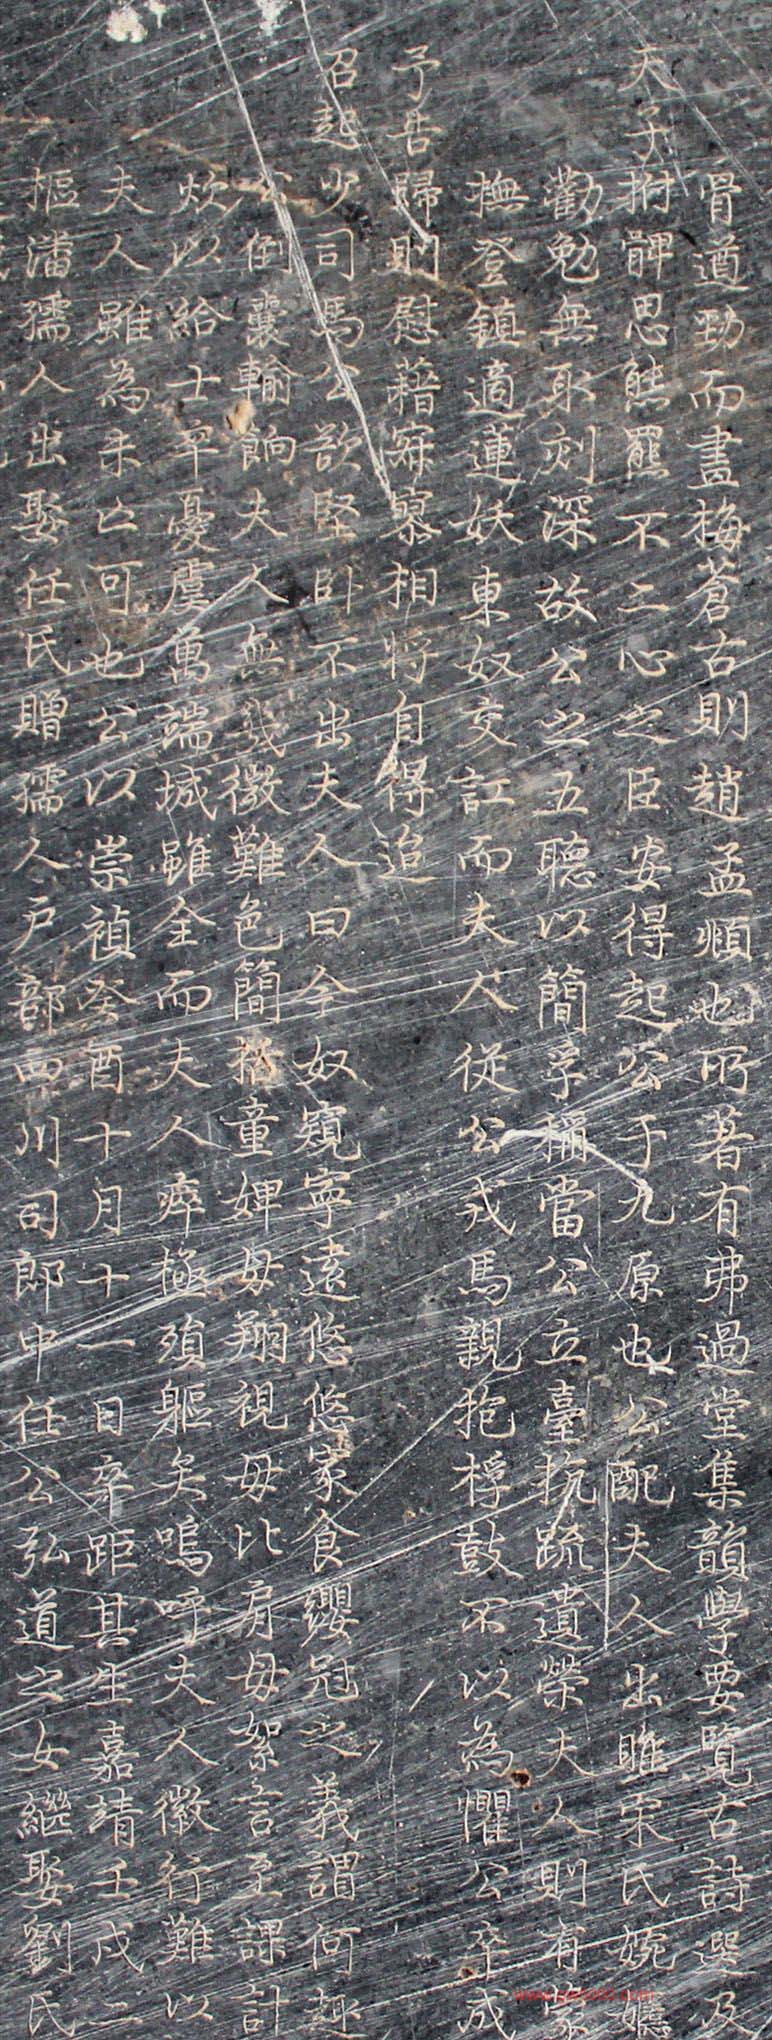 骨遒勁而畫梅蒼古則趙孟頫也所著有弗過堂集韻學要覽古詩選及
天子拊髀思熊羆不二心之臣安得起公于九原也公配夫人出睢宋氏婉
勸勉無取刻深故公之五聽以簡孚稱當公立臺抗疏遺榮夫人則有
撫登鎮適蓮妖東奴交訌而夫人從公戎馬親抱桴鼓不以為懼公卒成
予告歸則慰藉寂寥相將自得迨
召起少司馬公欲堅臥不出夫人曰今奴窺寧遠悠悠家食纓冠之義謂何趣
公倒囊輸餉夫人無幾微難色簡 童婢毋翔視毋比肩毋絮言至課計
炊以給士卒憂虞萬端城雖全而夫人瘁極殞軀矣嗚呼夫人徽行難以
夫人雖為未亡可也公以崇禎癸酉十月十一日卒距其生嘉靖壬戌二
摳潘孺人出娶任氏贈孺人戶部四川司郎中任公弘道之女繼娶劉氏
www.yac8.com